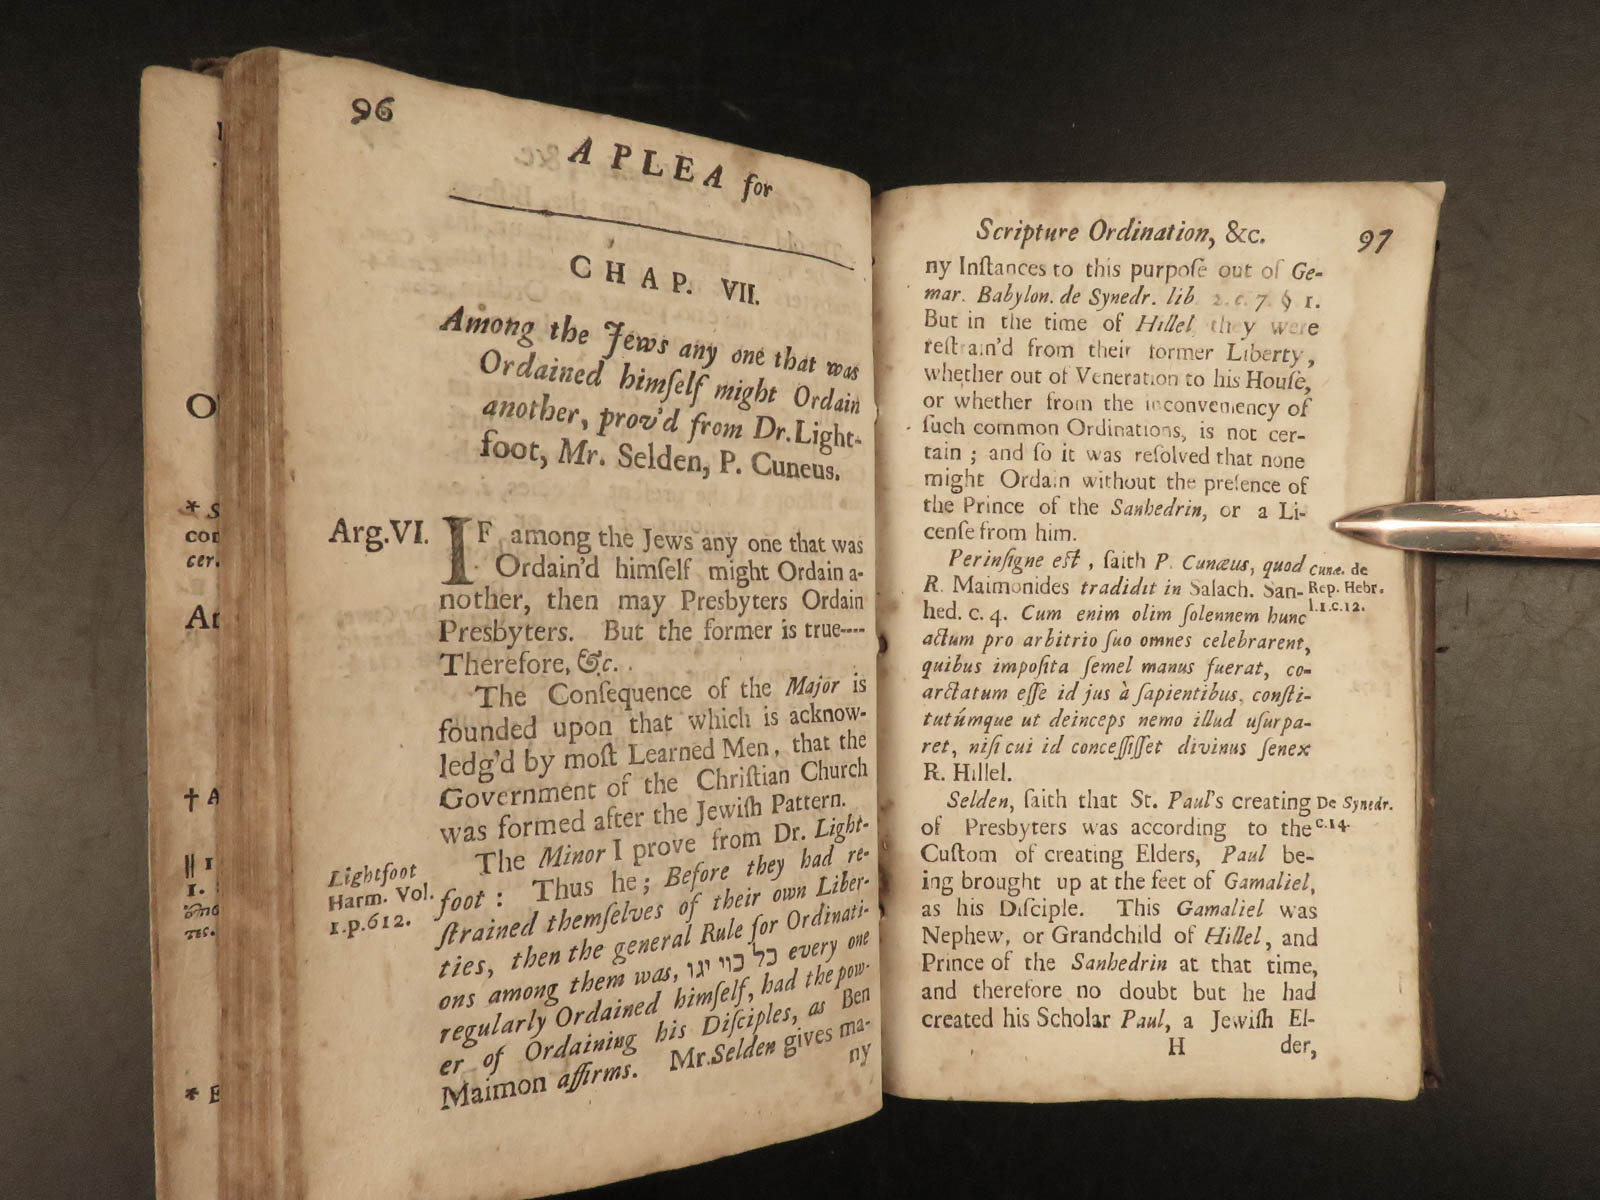 96
A PLEA for
CHAP. VII.
Among the Jews any one that was
Ordained himſelf might Ordain
another, prov'd from Dr. Light-
foot, Mr. Selden, P. Cuneus.
Arg. VI. IF among the Jews any one that was
Ordain'd himſelf might Ordain a-
nother, then may Presbyters Ordain
Presbyters. But the former is true----
Therefore, &c.
The Conſequence of the Major is
founded upon that which is acknow-
ledg'd by moſt Learned Men, that the
Government of the Chriſtian Church
was formed after the Jewiſh Pattern.
The Minor I prove from Dr. Light-
foot: Thus he; Before they had re-
Lightfoot
Harm. Vol.
1.p.612.
ſtrained themſelves of their own Liber-
ties, then the general Rule for Ordinati-
ons among them was, כל every one
regularly Ordained himſelf, had the pow-
er of Ordaining his Diſciples, as Ben
Maimon affirms. Mr. Selden gives ma-
ny
Scripture Ordination, &c. 97
ny Inſtances to this purpoſe out of Ge-
mar. Babylon. de Synedr. lib 2. c. 7. § 1.
But in the time of Hillel they were
reſtrain'd from their former Liberty,
whether out of Veneration to his Houſe,
or whether from the inconveniency of
ſuch common Ordinations, is not cer-
tain; and ſo it was reſolved that none
might Ordain without the preſence of
the Prince of the Sanhedrin, or a Li-
cenſe from him.
Perinſigne eſt, ſaith P. Cunæus, quod
R. Maimonides tradidit in Salach. San-
hed. c. 4. Cum enim olim ſolennem hunc
Cunæ. de
Rep. Hebr.
l.1.c.12.
actum pro arbitrio ſuo omnes celebrarent,
quibus impoſita ſemel manus fuerat, co-
arctatum eſſe id jus à ſapientibus, conſti-
tutúmque ut deinceps nemo illud uſurpa-
ret, niſi cui id conceſſiſſet divinus ſenex
R. Hillel.
Selden, ſaith that St. Paul's creating
of Presbyters was according to the
De Synedr.
c.14.
Cuſtom of creating Elders, Paul be-
ing brought up at the feet of Gamaliel,
as his Diſciple. This Gamaliel was
Nephew, or Grandchild of Hillel, and
Prince of the Sanhedrin at that time,
and therefore no doubt but he had
created his Scholar Paul, a Jewiſh El-
H der,